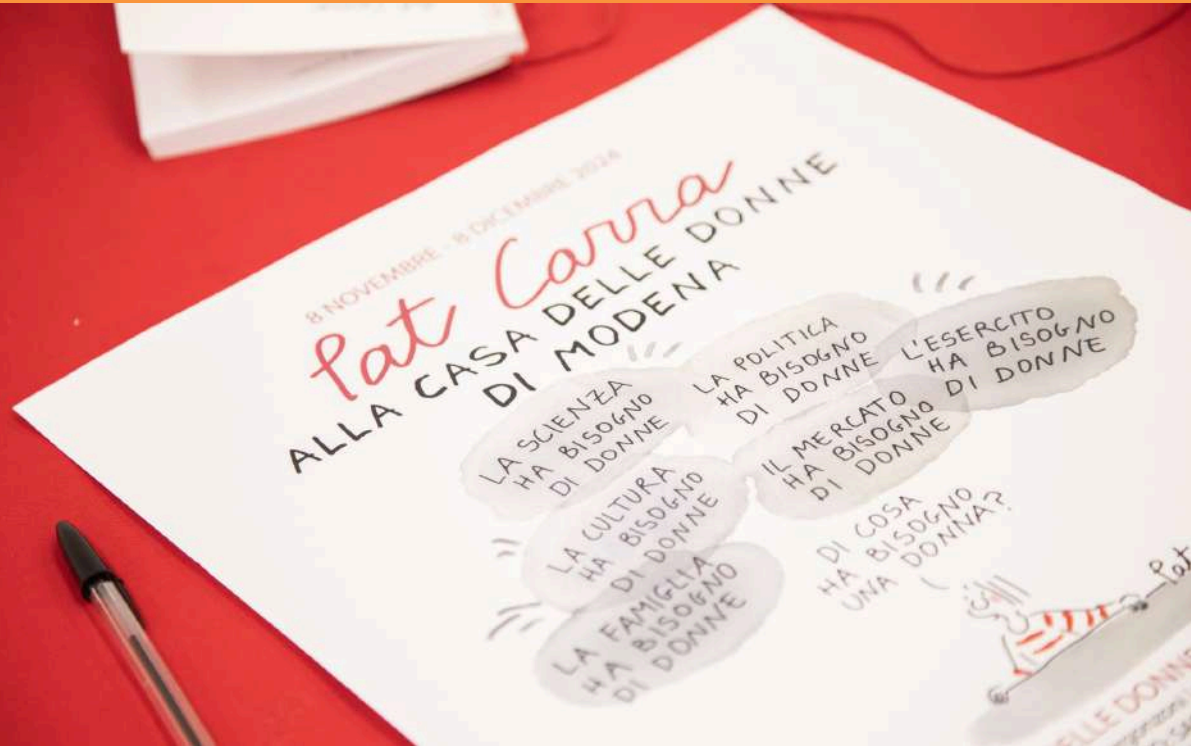 8 NOVEMBRE - 8 DICEMBRE 2024
Pat Carra
ALLA CASA DELLE DONNE
DI MODENA
LA SCIENZA
HA BISOGNO
DI DONNE
LA POLITICA
HA BISOGNO
DI DONNE
L'ESERCITO
HA BISOGNO
DI DONNE
LA CULTURA
HA BISOGNO
DI DONNE
IL MERCATO
HA BISOGNO
DI DONNE
LA FAMIGLIA
HA BISOGNO
DI DONNE
DI COSA
HA BISOGNO
UNA DONNA?
Pat
DONNE